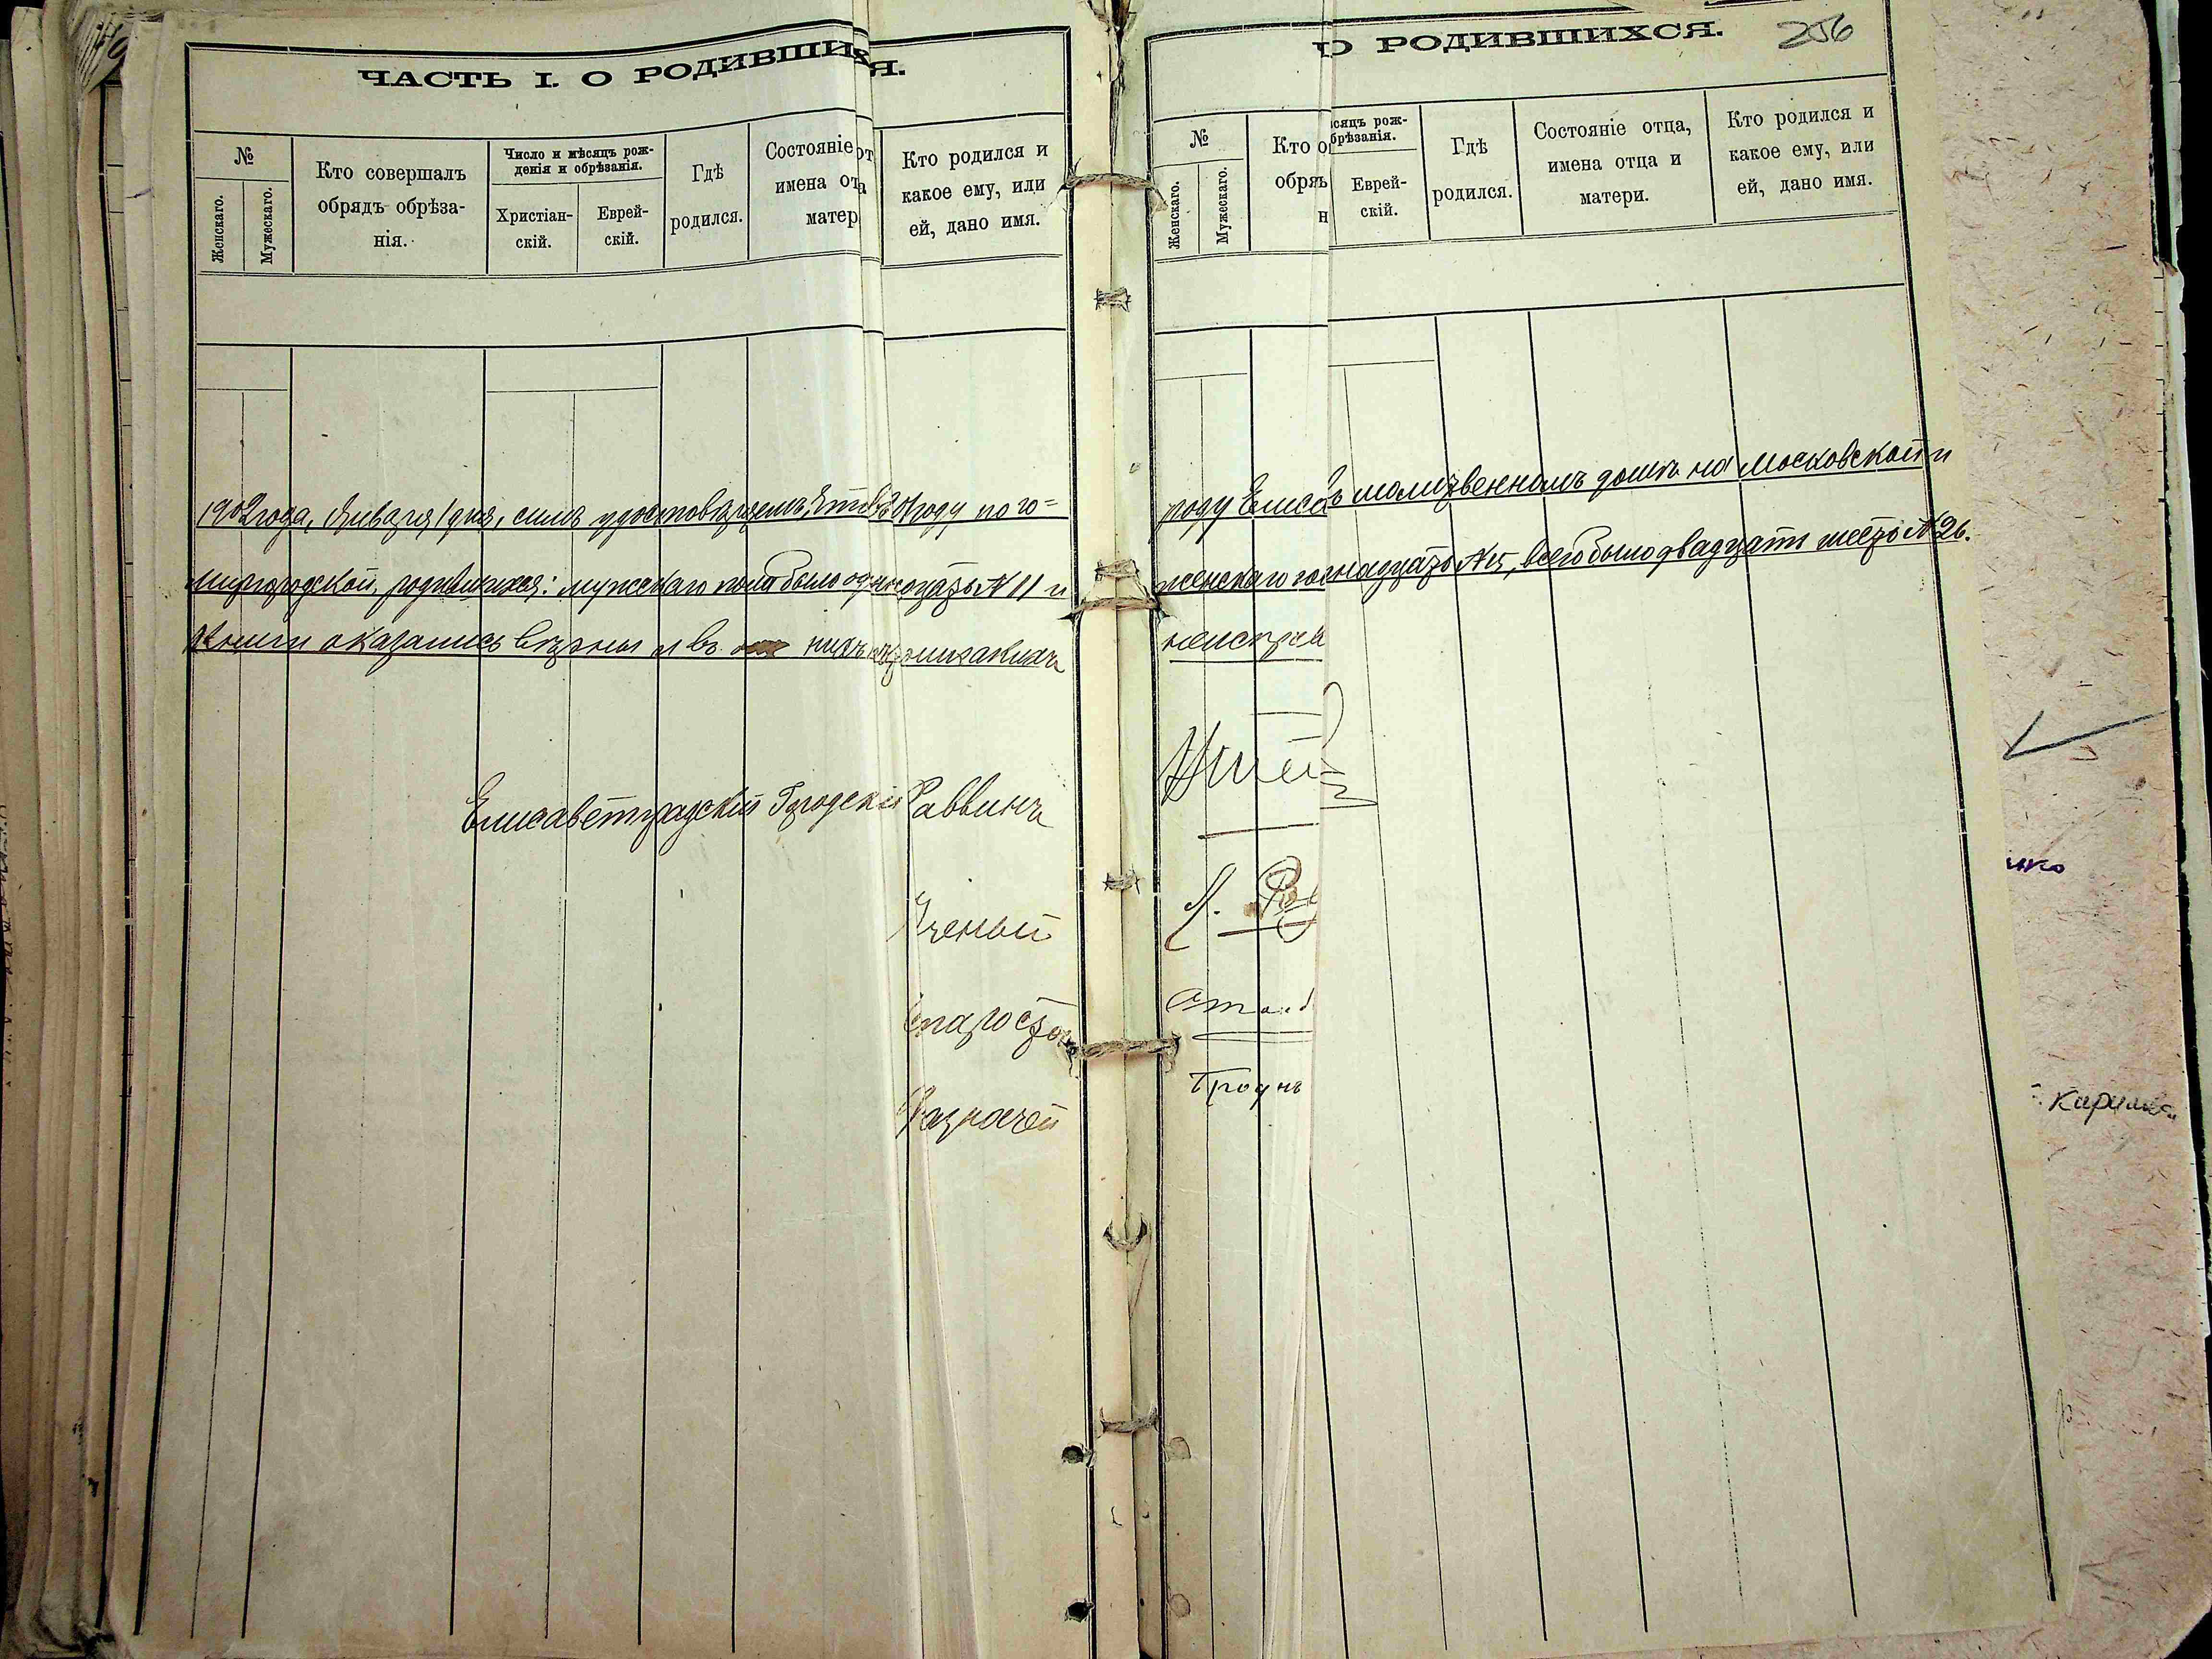 ЧАСТЬ I. О РОДИВШИХ
Я.
№
Женскаго.
Мужескаго.
Кто совершалъ
обрядъ обрѣза-
нія.
Число и мѣсяцъ рож-
денія и обрѣзанія.
Христіан-
скій.
Еврей-
скій.
Гдѣ
родился.
Состояніе от
имена от
матер
Кто родился и
какое ему, или
ей, дано имя.
1902 года, Января 1 дня, симъ удостовѣряемъ, что въ 1901 году по го=
Миргородской, родившихся: мужскаго пола было одинадцать № 11 и
Книги оказались вѣрны и въ нихъ никакихъ
Елисаветградскій Городской Раввинъ
Ученый
Староста
Казначей
О РОДИВШИХСЯ.
256
№
Женскаго.
Мужескаго.
Кто
обря
н
ѣсяцъ рож-
обрѣзанія.
Еврей-
скій.
Гдѣ
родился.
Состояніе отца,
имена отца и
матери.
Кто родился и
какое ему, или
ей, дано имя.
роду Елисав молитвенномъ домѣ на Московской и
женскаго № 15, всего было двадцать шесть № 26.
неиспр